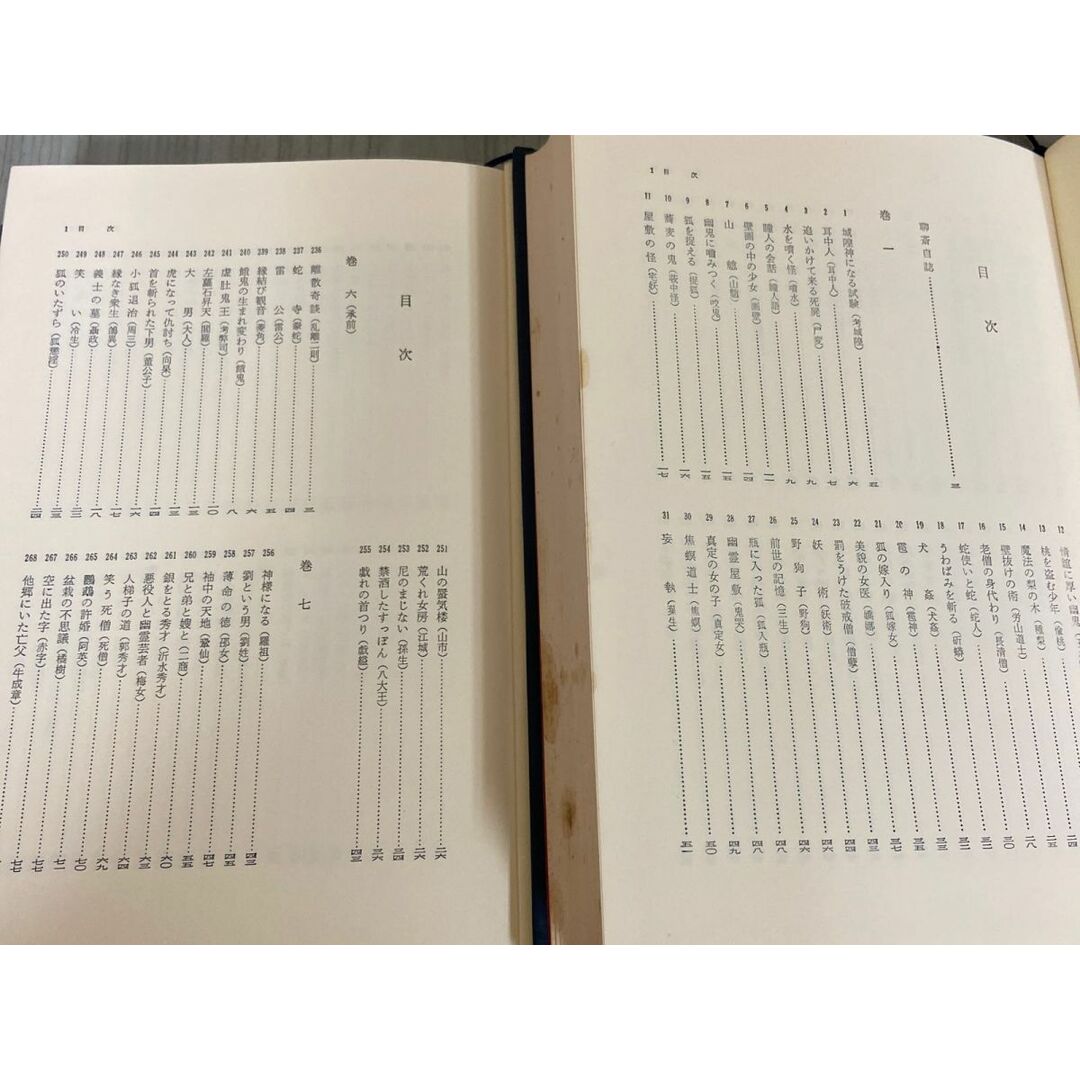 目次
聊斎自誌 三
巻一
1 城隍神になる試験(考城隍) 五
2 耳中人(耳中人) 六
3 追いかけて来る死屍(尸変) 七
4 水を噴く怪(噴水) 九
5 瞳人の会話(瞳人語) 九
6 壁画の中の少女(画壁) 一一
7 山魈(山魈) 一四
8 幽鬼に嚙みつく(咬鬼) 一五
9 狐を捉える(捉狐) 一五
10 蕎麦の鬼(荍中怪) 一六
11 屋敷の怪(宅妖) 一七
1 目次
12 情誼に厚い幽鬼 二四
13 桃を盗む少年(偸桃) 二五
14 魔法の梨の木(種梨) 二八
15 壁抜けの術(労山道士) 三〇
16 老僧の身代わり(長清僧) 三二
17 蛇使いと蛇(蛇人) 三二
18 うわばみを斬る(斫蟒) 三三
19 犬姦(犬姦) 三五
20 雹の神(雹神) 三七
21 狐の嫁入り(狐嫁女) 三八
22 美貌の女医(嬌娜)
23 罰をうけた破戒僧(僧孽) 四四
24 妖術(妖術) 四四
25 野狗子(野狗) 四六
26 前世の記憶(三生)
27 瓶に入った狐(狐入瓶) 四八
28 幽霊屋敷(鬼哭) 四九
29 真定の女の子(真定女) 五〇
30 焦螟道士(焦螟)
31 妄執(葉生) 五一
目次
巻六(承前)
236 離散奇談(乱離二則) 三
237 蛇寺(豢蛇) 四
238 雷公(雷公) 五
239 縁結び観音(菱角) 六
240 餓鬼の生まれ変わり(餓鬼) 八
241 虚肚鬼王(考弊司)
242 左墓石昇天(閻羅) 一〇
243 大男(大人) 一三
244 虎になって仇討ち(向杲) 一三
245 首を斬られた下男(董公子) 一四
246 小狐退治(周三) 一六
247 縁なき衆生(鴿異) 一七
248 義士の墓(聶政) 一八
249 笑い(冷生)
250 狐のいたずら(狐懲淫) 二四
1 目次
251 山の蜃気楼(山市) 二六
252 荒くれ女房(江城) 二六
253 尼のまじない(孫生) 三四
254 禁酒したすっぽん(八大王) 三六
255 戯れの首つり(戯縊) 四三
巻七
256 神様になる(羅祖)
257 劉という男(劉姓) 四三
258 薄命の徳(邵女)
259 袖中の天地(鞏仙) 四七
260 兄と弟と嫂と(二商) 五五
261 銀をとる秀才(沂水秀才) 六〇
262 悪役人と幽霊芸者(梅女) 六三
263 人梯子の道(郭秀才) 六四
264 笑う死僧(死僧) 六九
265 鸚鵡の許婚(阿英) 七〇
266 盆栽の不思議(橘樹) 七一
267 空に出た字(赤字) 七七
268 他郷にいた亡父(牛成章) 七七